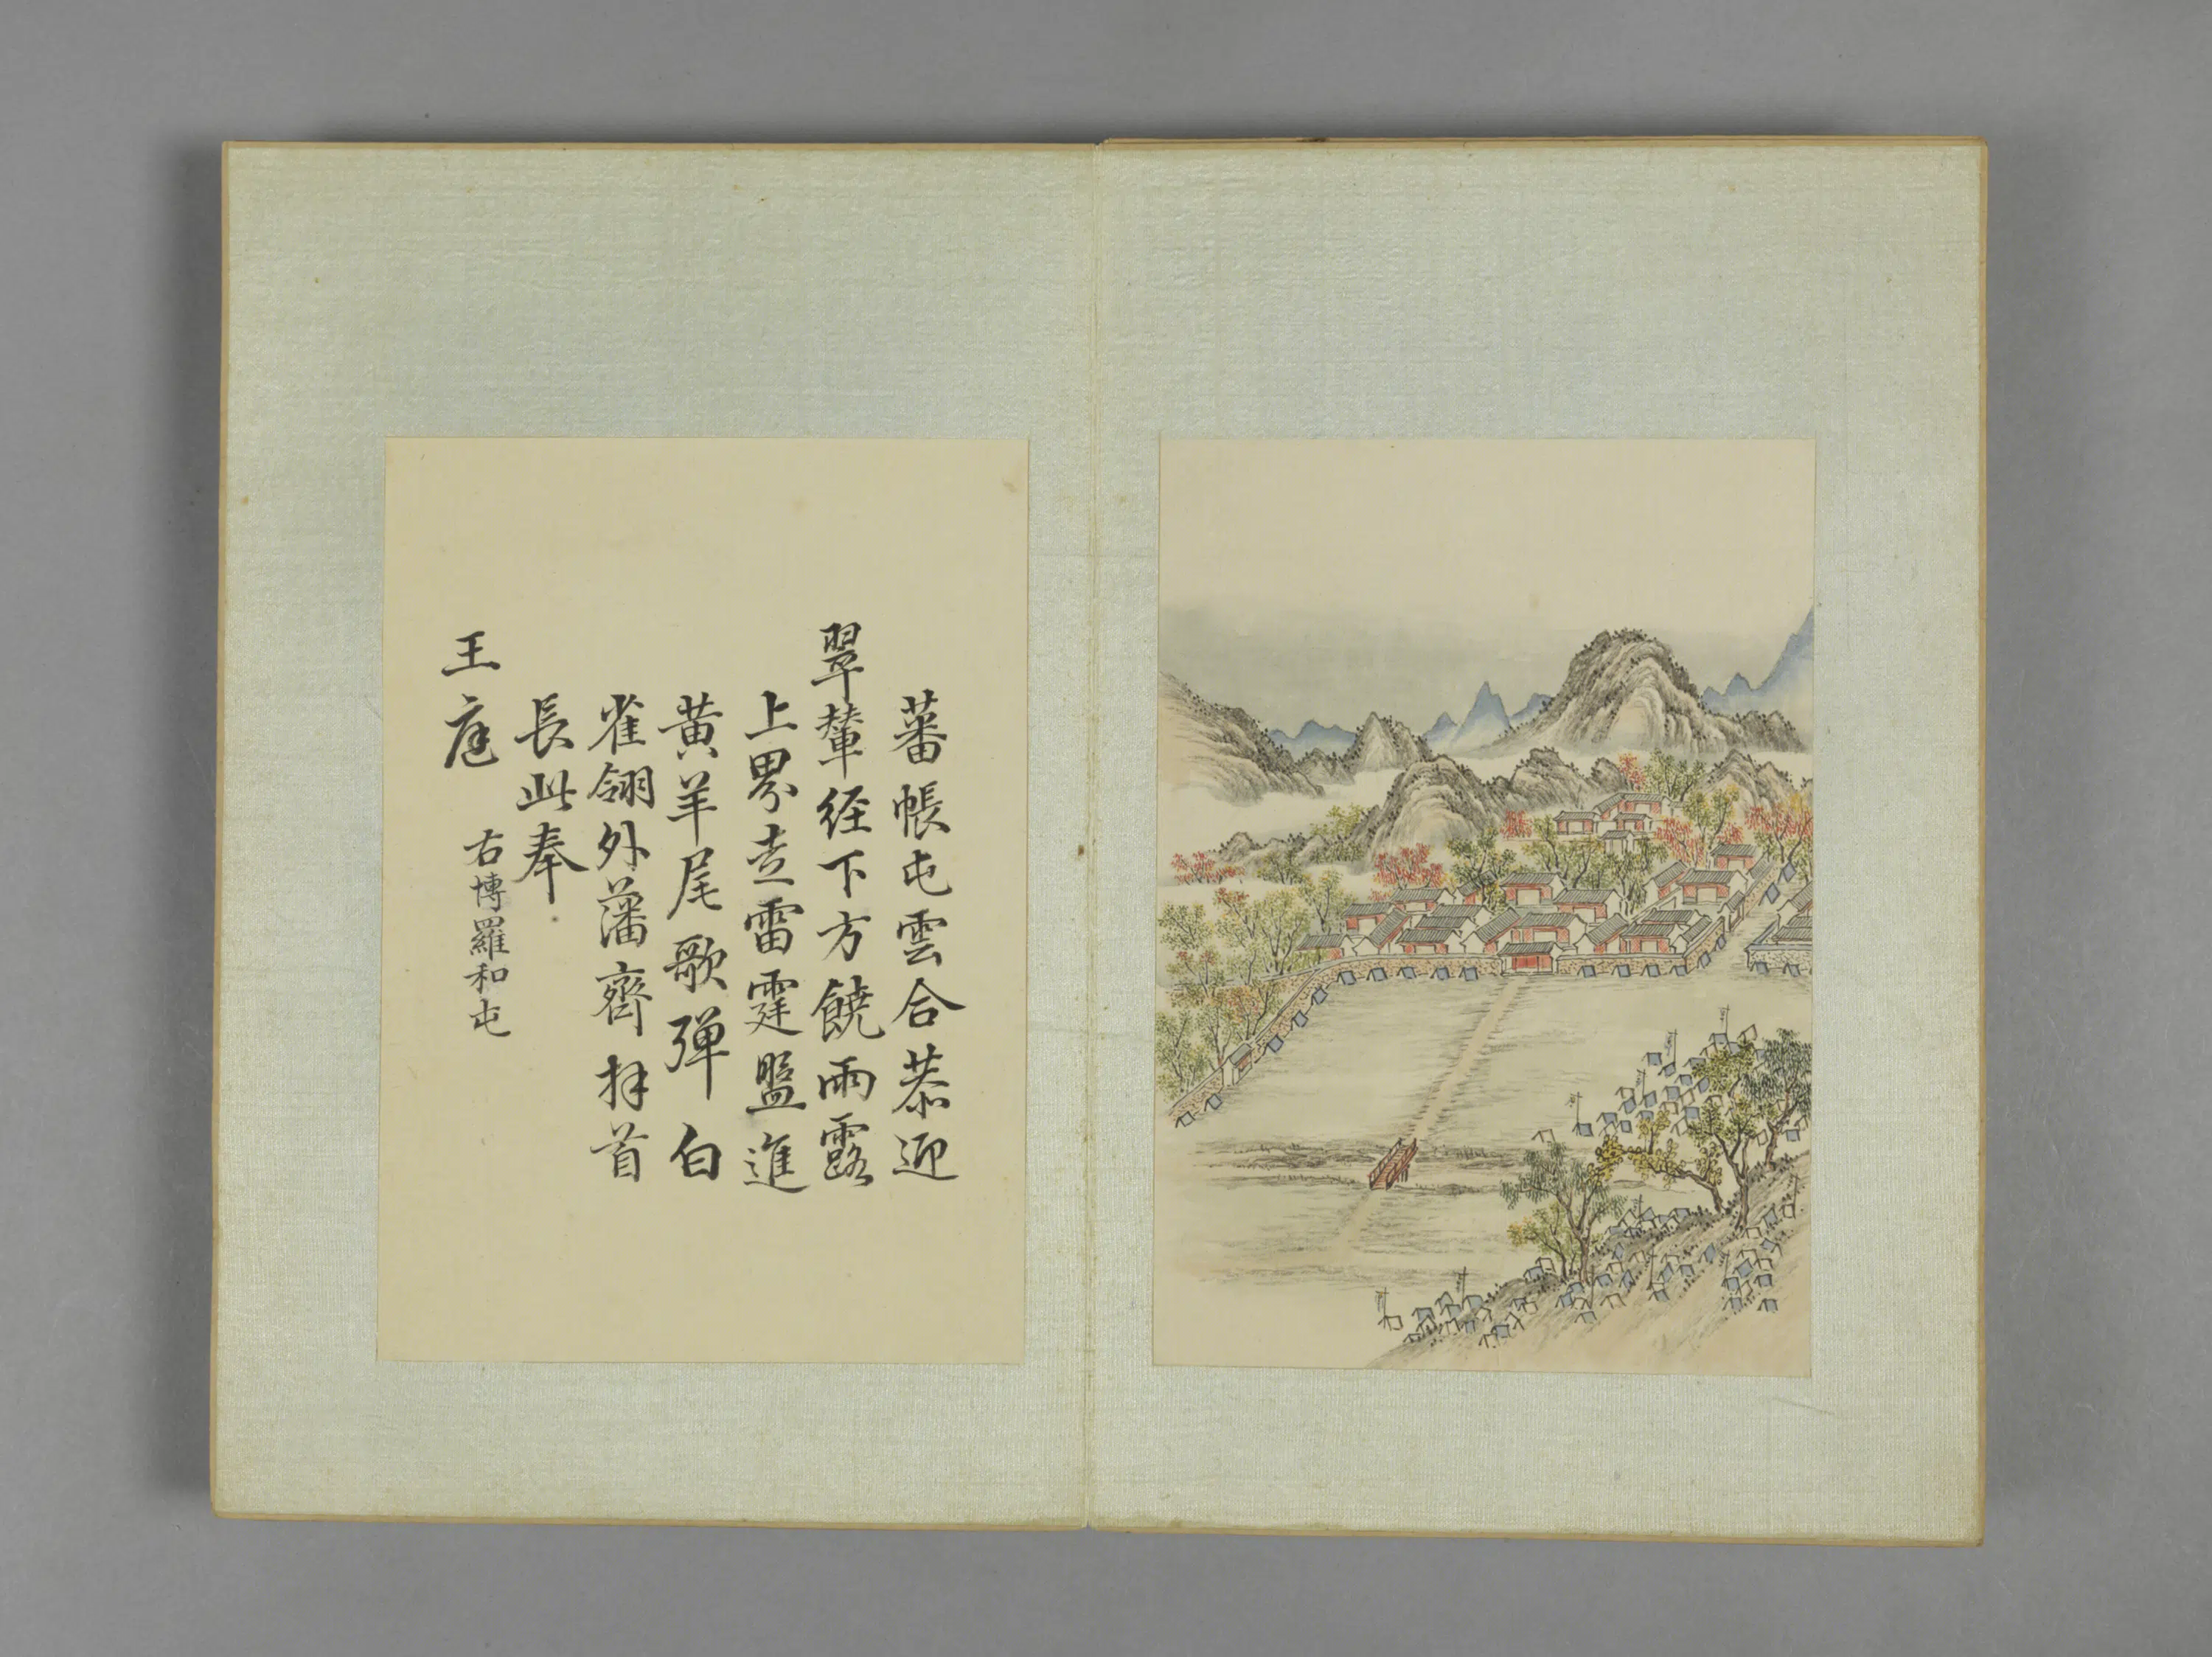 蕃帳屯雲合恭迎
翠輦経下方饒雨露
上界走雷霆盤進
黄羊尾歌弹白
雀翎外藩齊拜首
長此奉
王庭
右博羅和屯